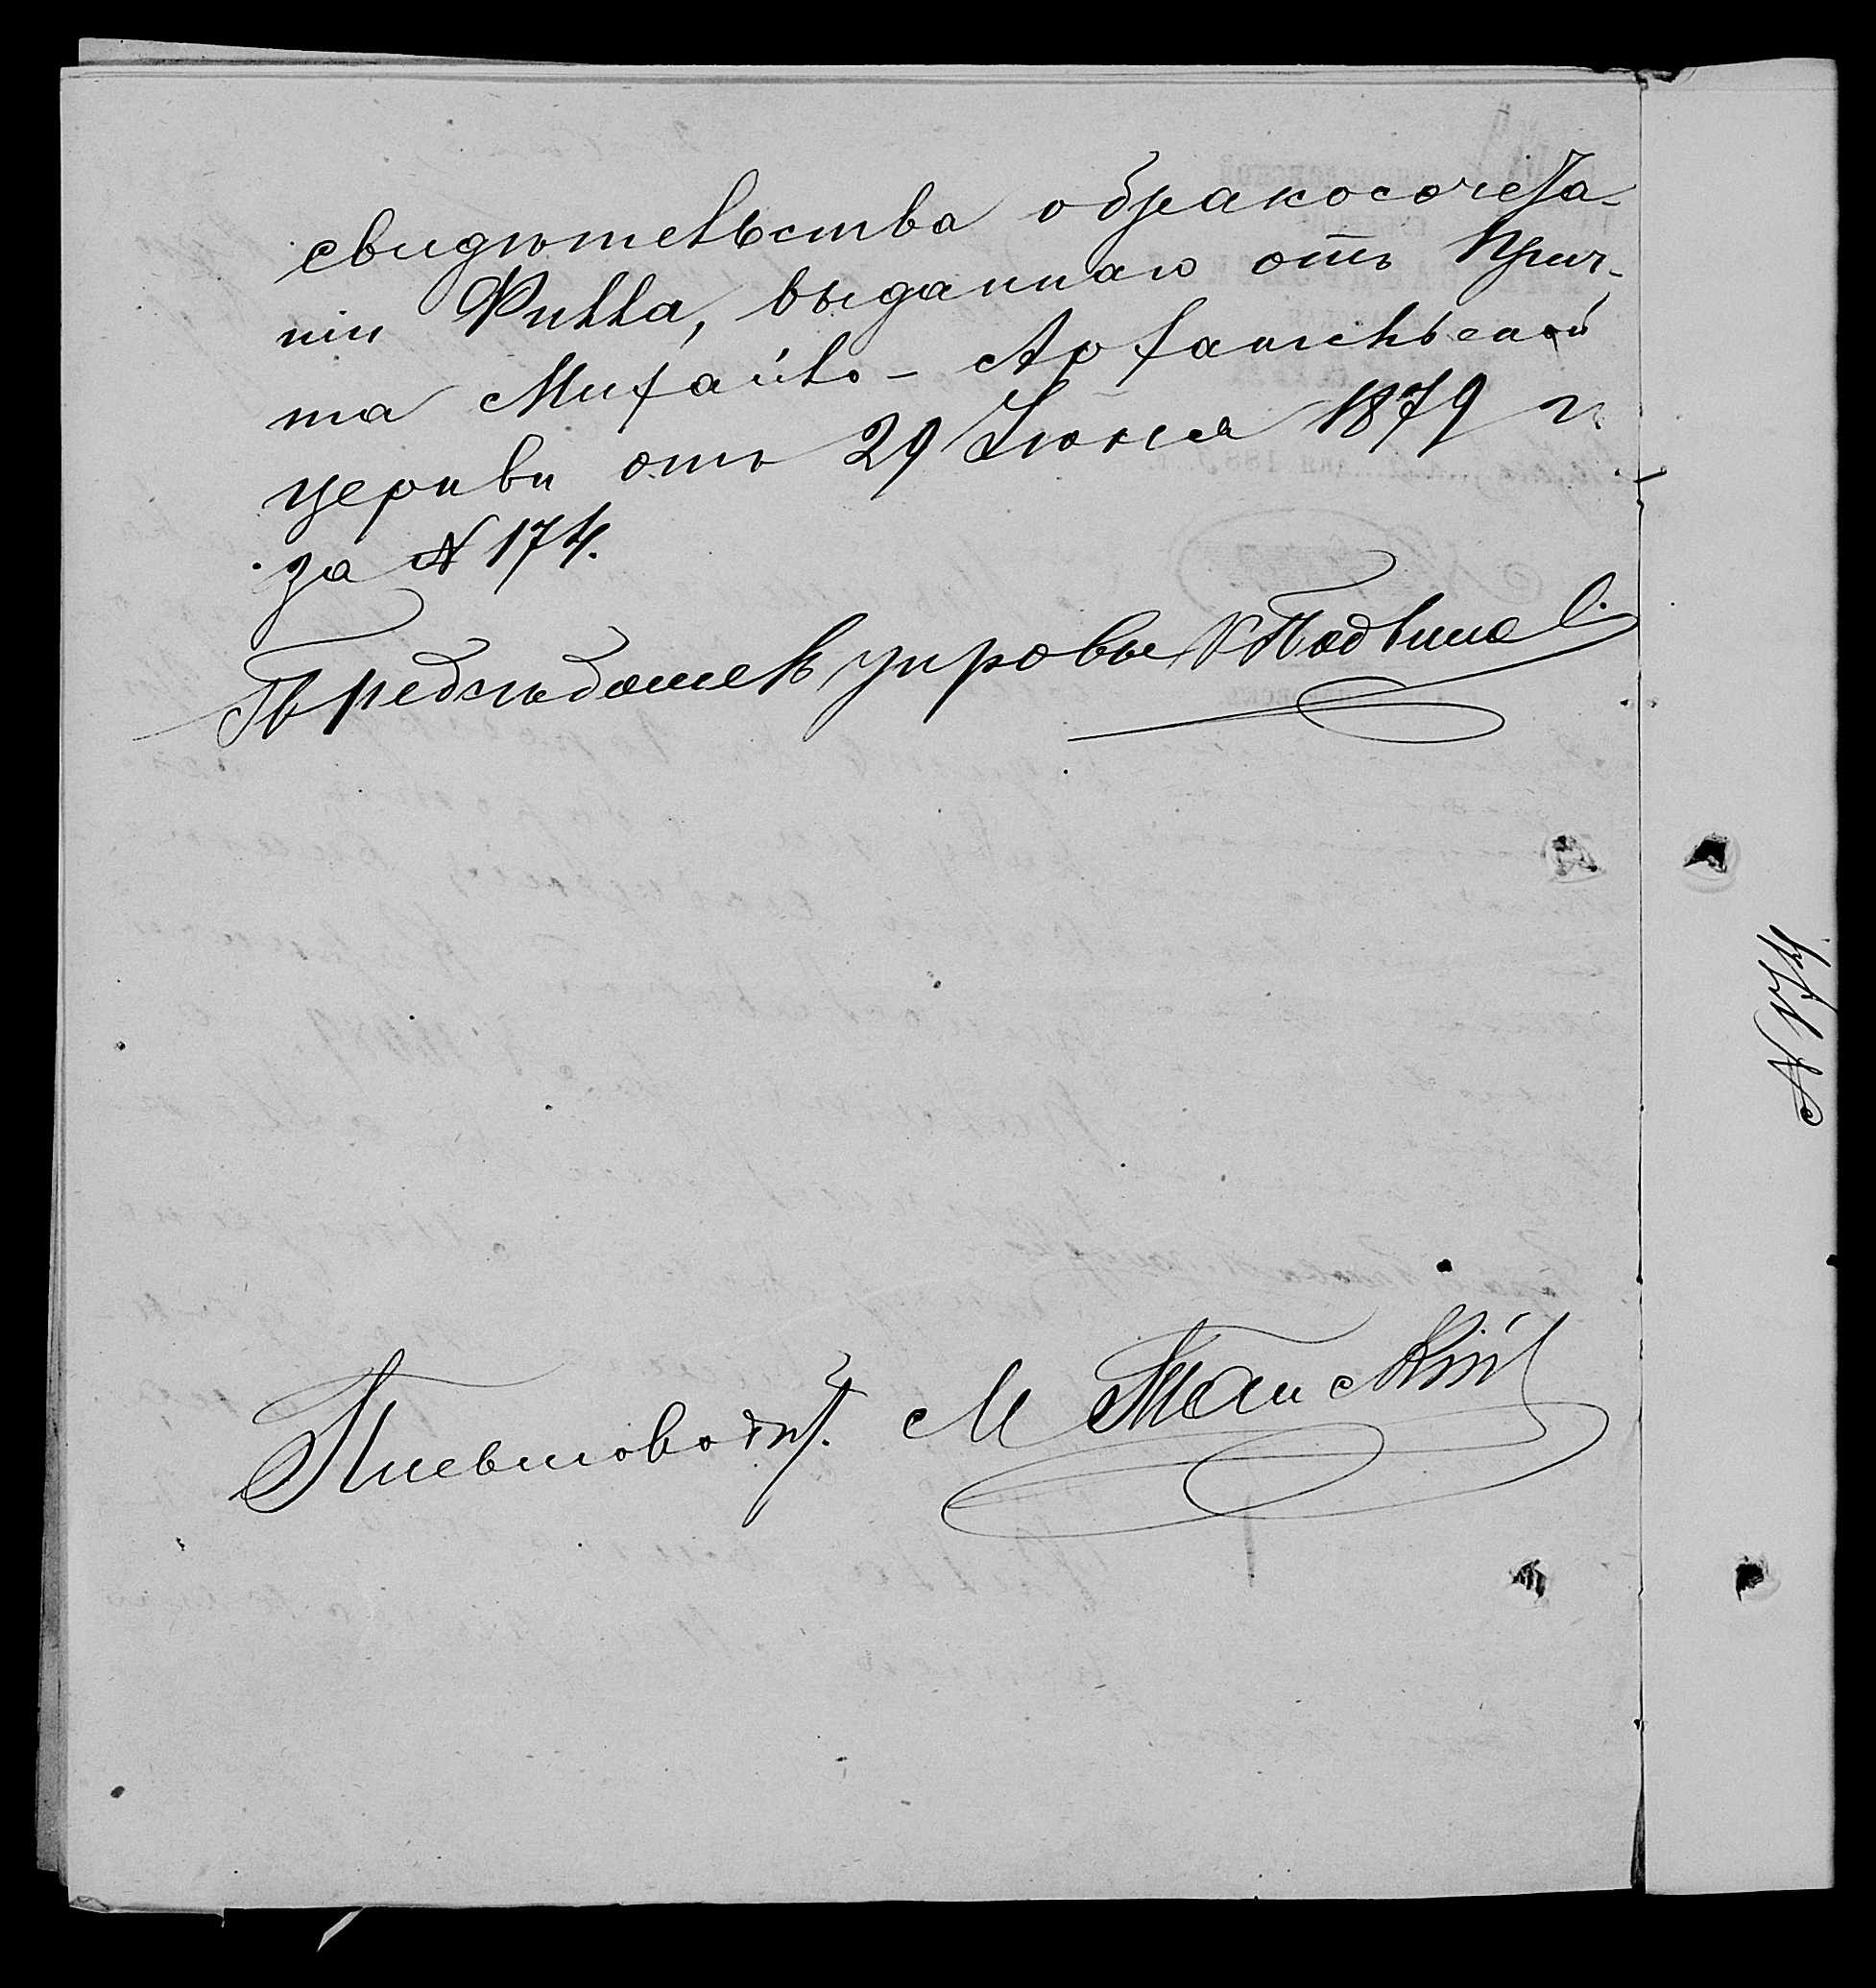 свидѣтельства о бракосочета-
ніи Филла, выданнаго отъ Прич-
та Михайло-Архангельской
церкви отъ 29 Іюня 1879 г.
за № 174.
Предсѣдатель управы
Письмовод. М
№ 174.